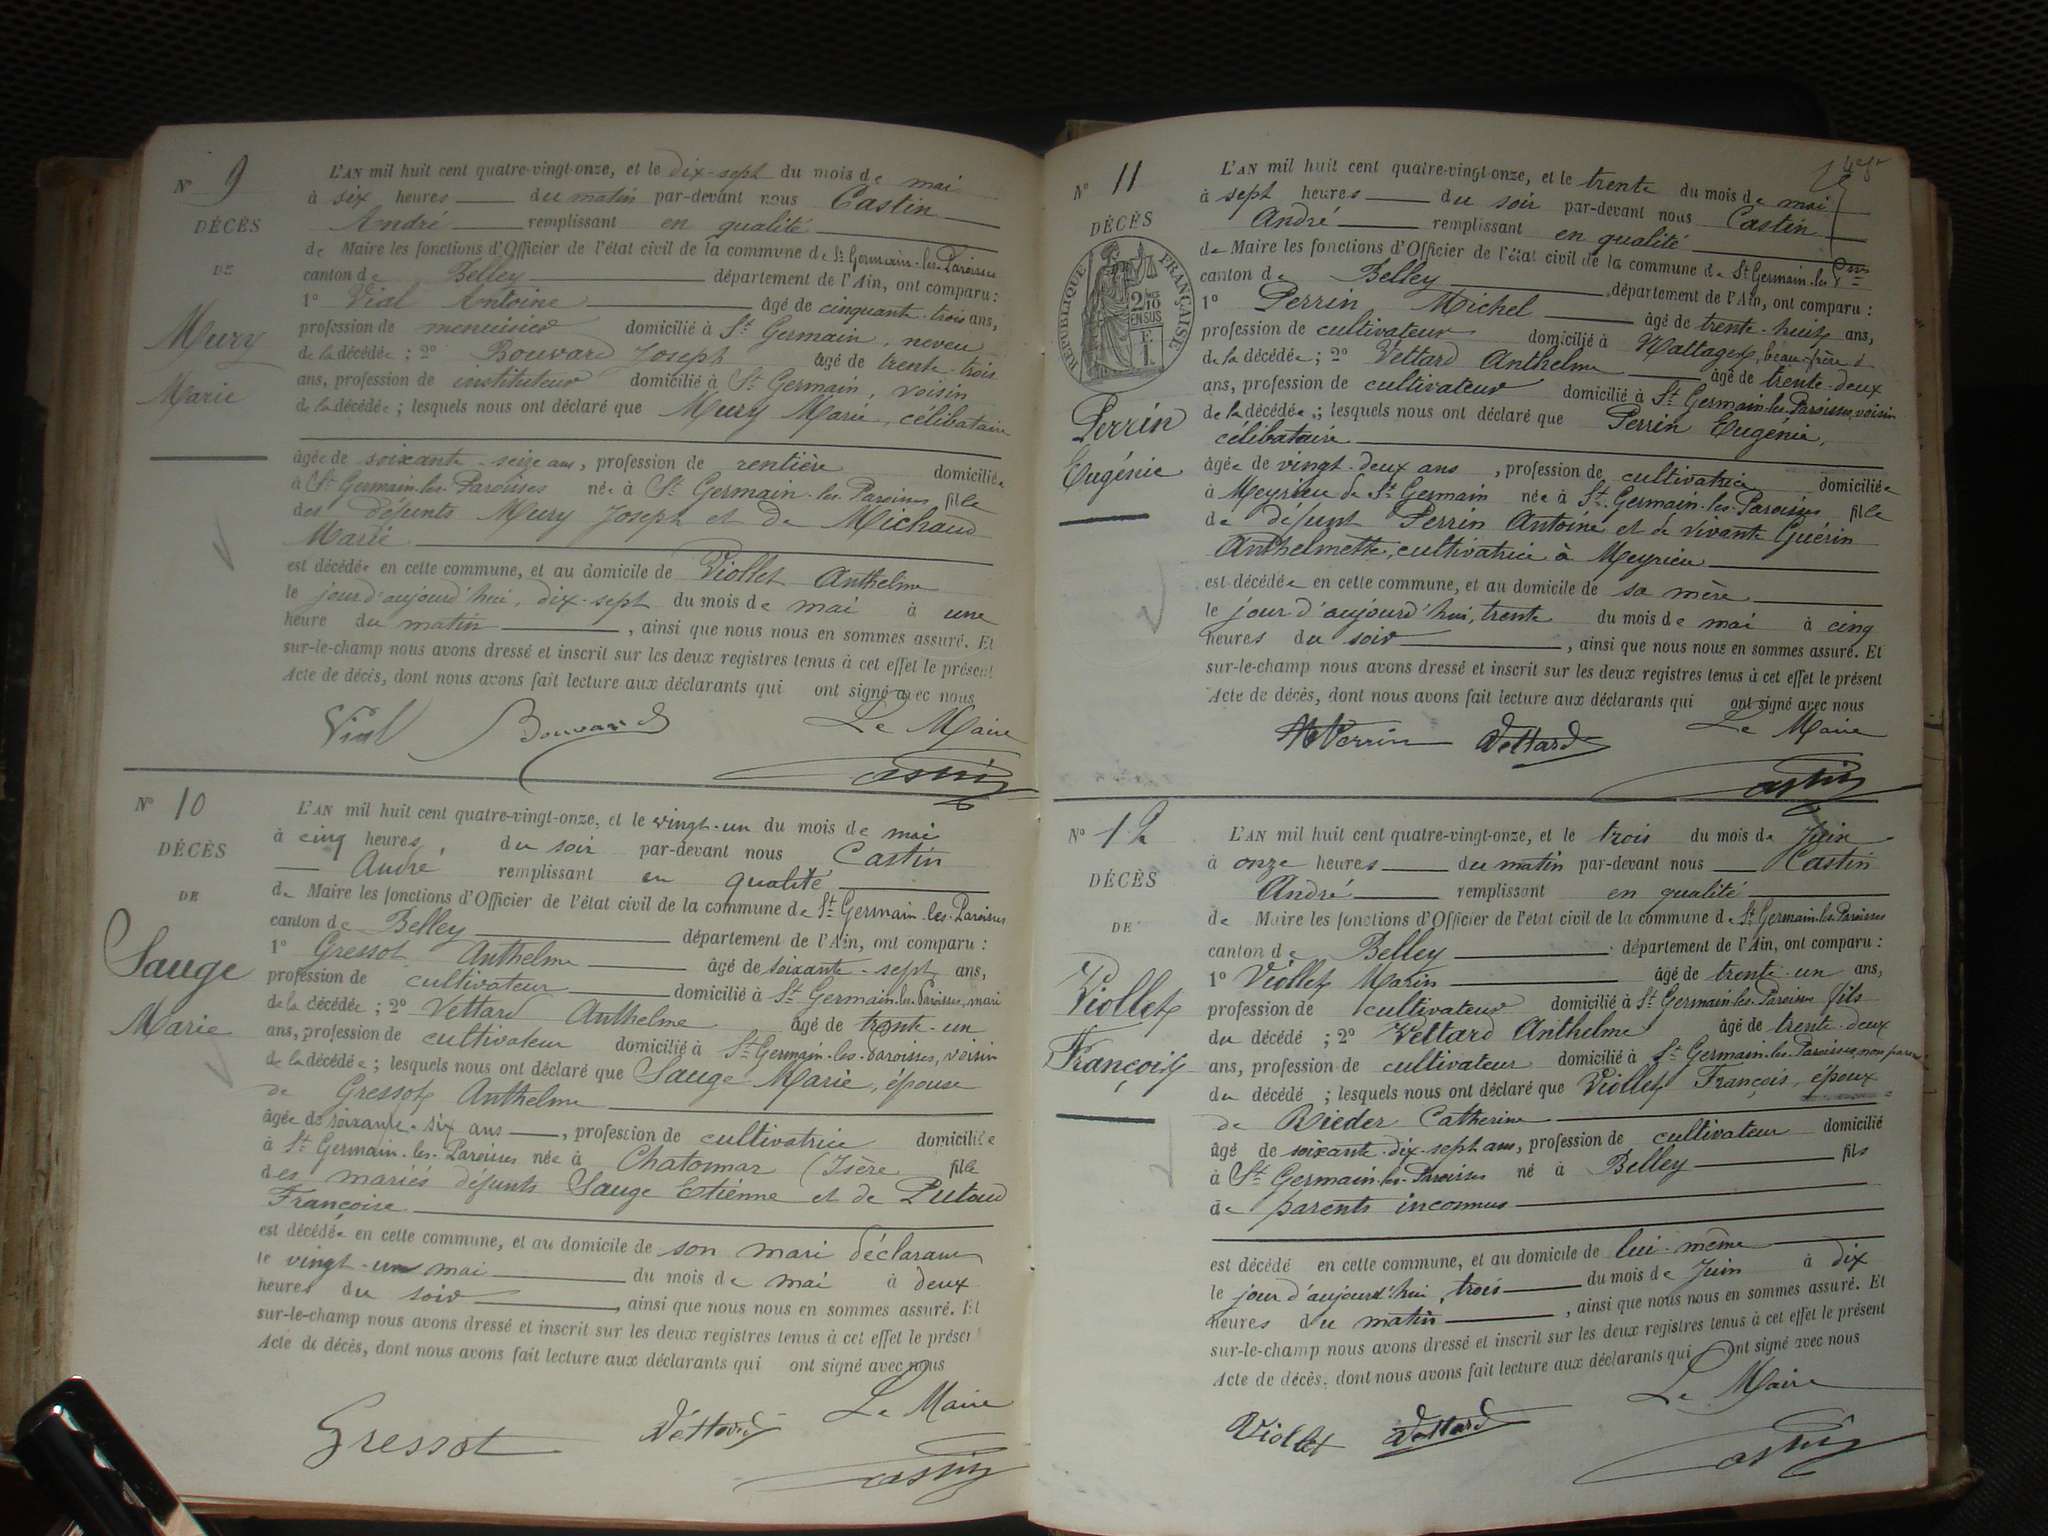 N° 9
DÉCÈS
DE
Mury
Marie
L'AN mil huit cent quatre-vingt-onze, et le dix-sept du mois de mai
à six heures du matin par-devant nous Castin
André remplissant en qualité
de Maire les fonctions d'Officier de l'état civil de la commune de St Germain-les-Paroisses
canton de Belley département de l'Ain, ont comparu :
1° Vial Antoine âgé de cinquante-trois ans,
profession de menuisier domicilié à St Germain, neveu
de la décédée ; 2° Bouvard Joseph âgé de trente-trois
ans, profession de instituteur domicilié à St Germain, voisin
de la décédée ; lesquels nous ont déclaré que Mury Marie, célibataire
âgée de soixante-seize ans, profession de rentière domiciliée
à St Germain-les-Paroisses née à St Germain-les-Paroisses fille
des défunts Mury Joseph et de Michaud
Marie
est décédée en cette commune, et au domicile de Viollet Anthelme
le jour d'aujourd'hui, dix-sept du mois de mai à une
heure du matin, ainsi que nous nous en sommes assuré. Et
sur-le-champ nous avons dressé et inscrit sur les deux registres tenus à cet effet le présent
Acte de décès, dont nous avons fait lecture aux déclarants qui ont signé avec nous
Vial Bouvard Le Maire
Castin
N° 10
DÉCÈS
DE
Sauge
Marie
L'AN mil huit cent quatre-vingt-onze, et le vingt-un du mois de mai
à cinq heures, du soir par-devant nous Castin
André remplissant en qualité
de Maire les fonctions d'Officier de l'état civil de la commune de St Germain-les-Paroisses
canton de Belley département de l'Ain, ont comparu :
1° Gressot Anthelme âgé de soixante-sept ans,
profession de cultivateur domicilié à St Germain-les-Paroisses, mari
de la décédée ; 2° Vettard Anthelme âgé de trente-un
ans, profession de cultivateur domicilié à St Germain-les-Paroisses, voisin
de la décédée ; lesquels nous ont déclaré que Sauge Marie, épouse
de Gressot Anthelme
âgée de soixante-six ans, profession de cultivatrice domiciliée
à St Germain-les-Paroisses née à Chatonnay (Isère fille
des mariés défunts Sauge Etienne et de Putoud
Françoise
est décédée en cette commune, et au domicile de son mari déclarant
le vingt-un mai du mois de mai à deux
heures du soir, ainsi que nous nous en sommes assuré. Et
sur-le-champ nous avons dressé et inscrit sur les deux registres tenus à cet effet le présent
Acte de décès, dont nous avons fait lecture aux déclarants qui ont signé avec nous
Gressot Vettard Le Maire
Castin
N° 11
DÉCÈS
RÉPUBLIQUE FRANÇAISE
2/10 EN SUS
Perrin
Eugénie
L'AN mil huit cent quatre-vingt-onze, et le trente du mois de mai
à sept heures du soir par-devant nous Castin
André remplissant en qualité
de Maire les fonctions d'Officier de l'état civil de la commune de St Germain-les-Pses
canton de Belley département de l'Ain, ont comparu :
1° Perrin Michel âgé de trente-huit ans,
profession de cultivateur domicilié à Nattages, beau-frère
de la décédée ; 2° Vettard Anthelme âgé de trente-deux
ans, profession de cultivateur domicilié à St Germain-les-Paroisses, voisin
de la décédée ; lesquels nous ont déclaré que Perrin Eugénie,
célibataire
âgée de vingt-deux ans, profession de cultivatrice domiciliée
à Meyrieu de St Germain née à St Germain-les-Paroisses fille
de défunt Perrin Antoine et de vivante Guérin
Anthelmette, cultivatrice à Meyrieu
est décédée en cette commune, et au domicile de sa mère
le jour d'aujourd'hui, trente du mois de mai à cinq
heures du soir, ainsi que nous nous en sommes assuré. Et
sur-le-champ nous avons dressé et inscrit sur les deux registres tenus à cet effet le présent
Acte de décès, dont nous avons fait lecture aux déclarants qui ont signé avec nous
Perrin Vettard Le Maire
Castin
N° 12
DÉCÈS
DE
Viollet
François
L'AN mil huit cent quatre-vingt-onze, et le trois du mois de Juin
à onze heures du matin par-devant nous Castin
André remplissant en qualité
de Maire les fonctions d'Officier de l'état civil de la commune de St Germain-les-Paroisses
canton de Belley département de l'Ain, ont comparu :
1° Viollet Marin âgé de trente-un ans,
profession de cultivateur domicilié à St Germain-les-Paroisses fils
du décédé ; 2° Vettard Anthelme âgé de trente-deux
ans, profession de cultivateur domicilié à St Germain-les-Paroisses, non parent
du décédé ; lesquels nous ont déclaré que Viollet François, époux
de Rieder Catherine
âgé de soixante-dix-sept ans, profession de cultivateur domicilié
à St Germain-les-Paroisses né à Belley fils
de parents inconnus
est décédé en cette commune, et au domicile de lui-même
le jour d'aujourd'hui, trois du mois de Juin à dix
heures du matin, ainsi que nous nous en sommes assuré. Et
sur-le-champ nous avons dressé et inscrit sur les deux registres tenus à cet effet le présent
Acte de décès, dont nous avons fait lecture aux déclarants qui ont signé avec nous
Viollet Vettard Le Maire
Castin